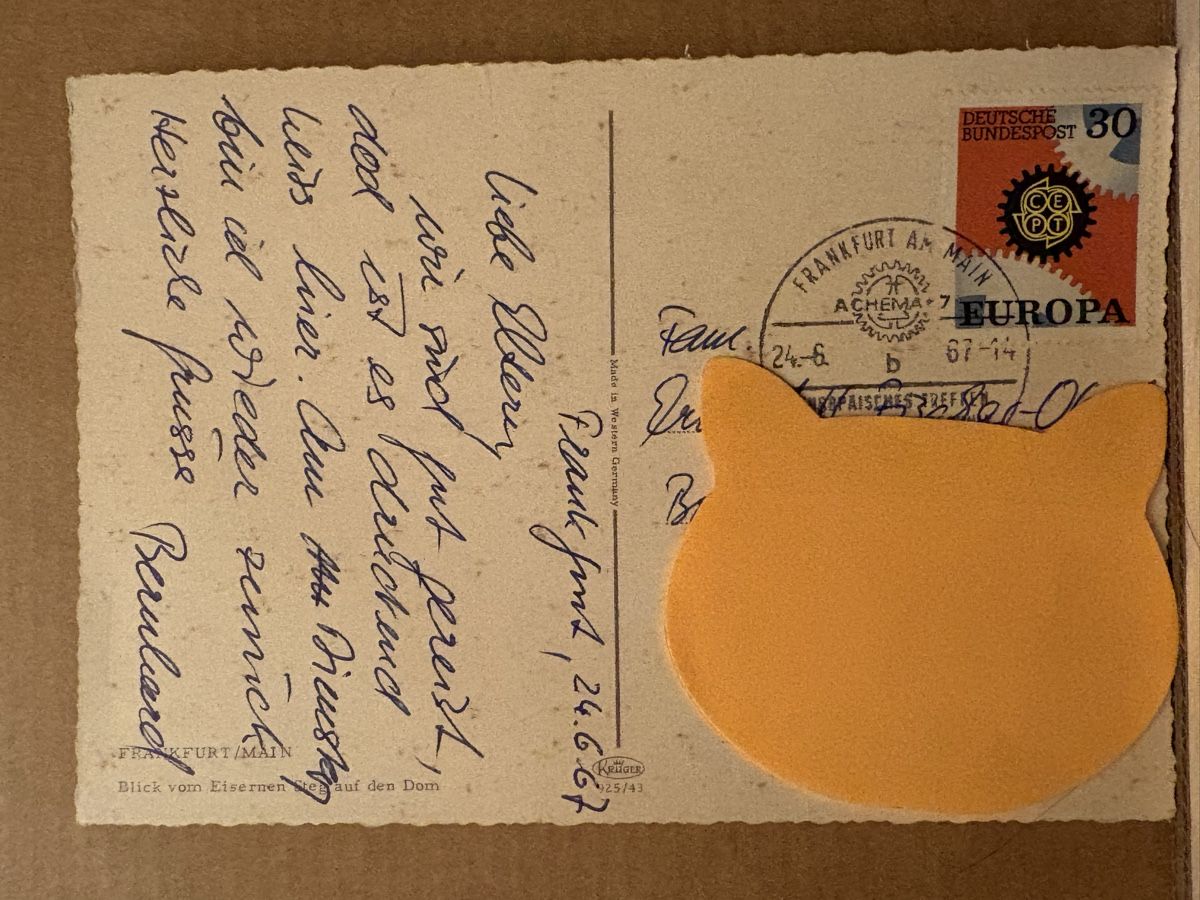 Frankfurt, 24.6.67
Liebe Eltern,
wir sind gut gereist,
doch ist es drückend
heiss hier. Am Dienstag
bin ich wieder zurück
Herzliche Grüsse Bernhard
FRANKFURT/MAIN
Blick vom Eisernen Steg auf den Dom
Made in Western Germany
KRÜGER
925/43
DEUTSCHE
BUNDESPOST 30
CEPT
EUROPA
FRANKFURT AM MAIN
ACHEMA
24.-6. b 67-14
EUROPÄISCHES TREFFEN
Fam.